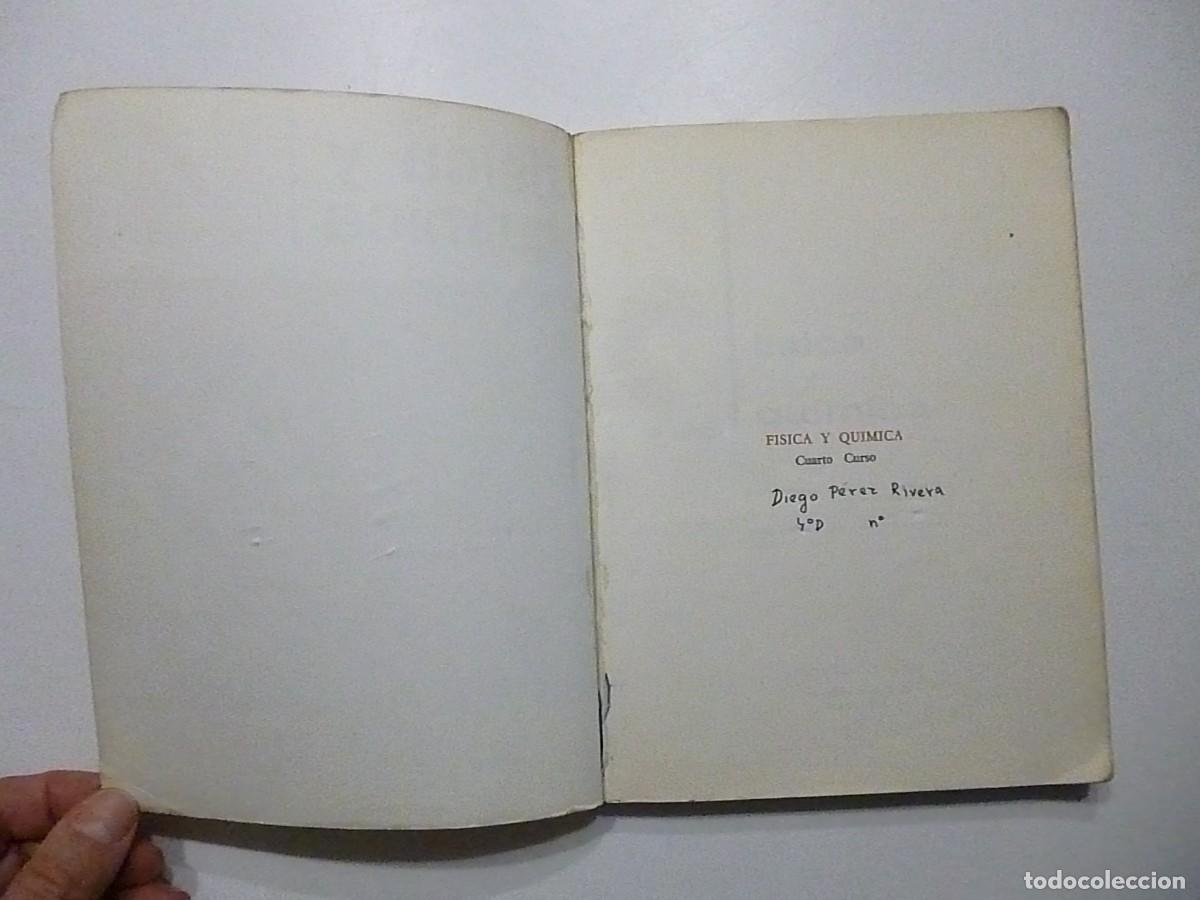 FISICA Y QUIMICA
Cuarto Curso
Diego Pérez Rivera
4ºD nº
todocoleccion